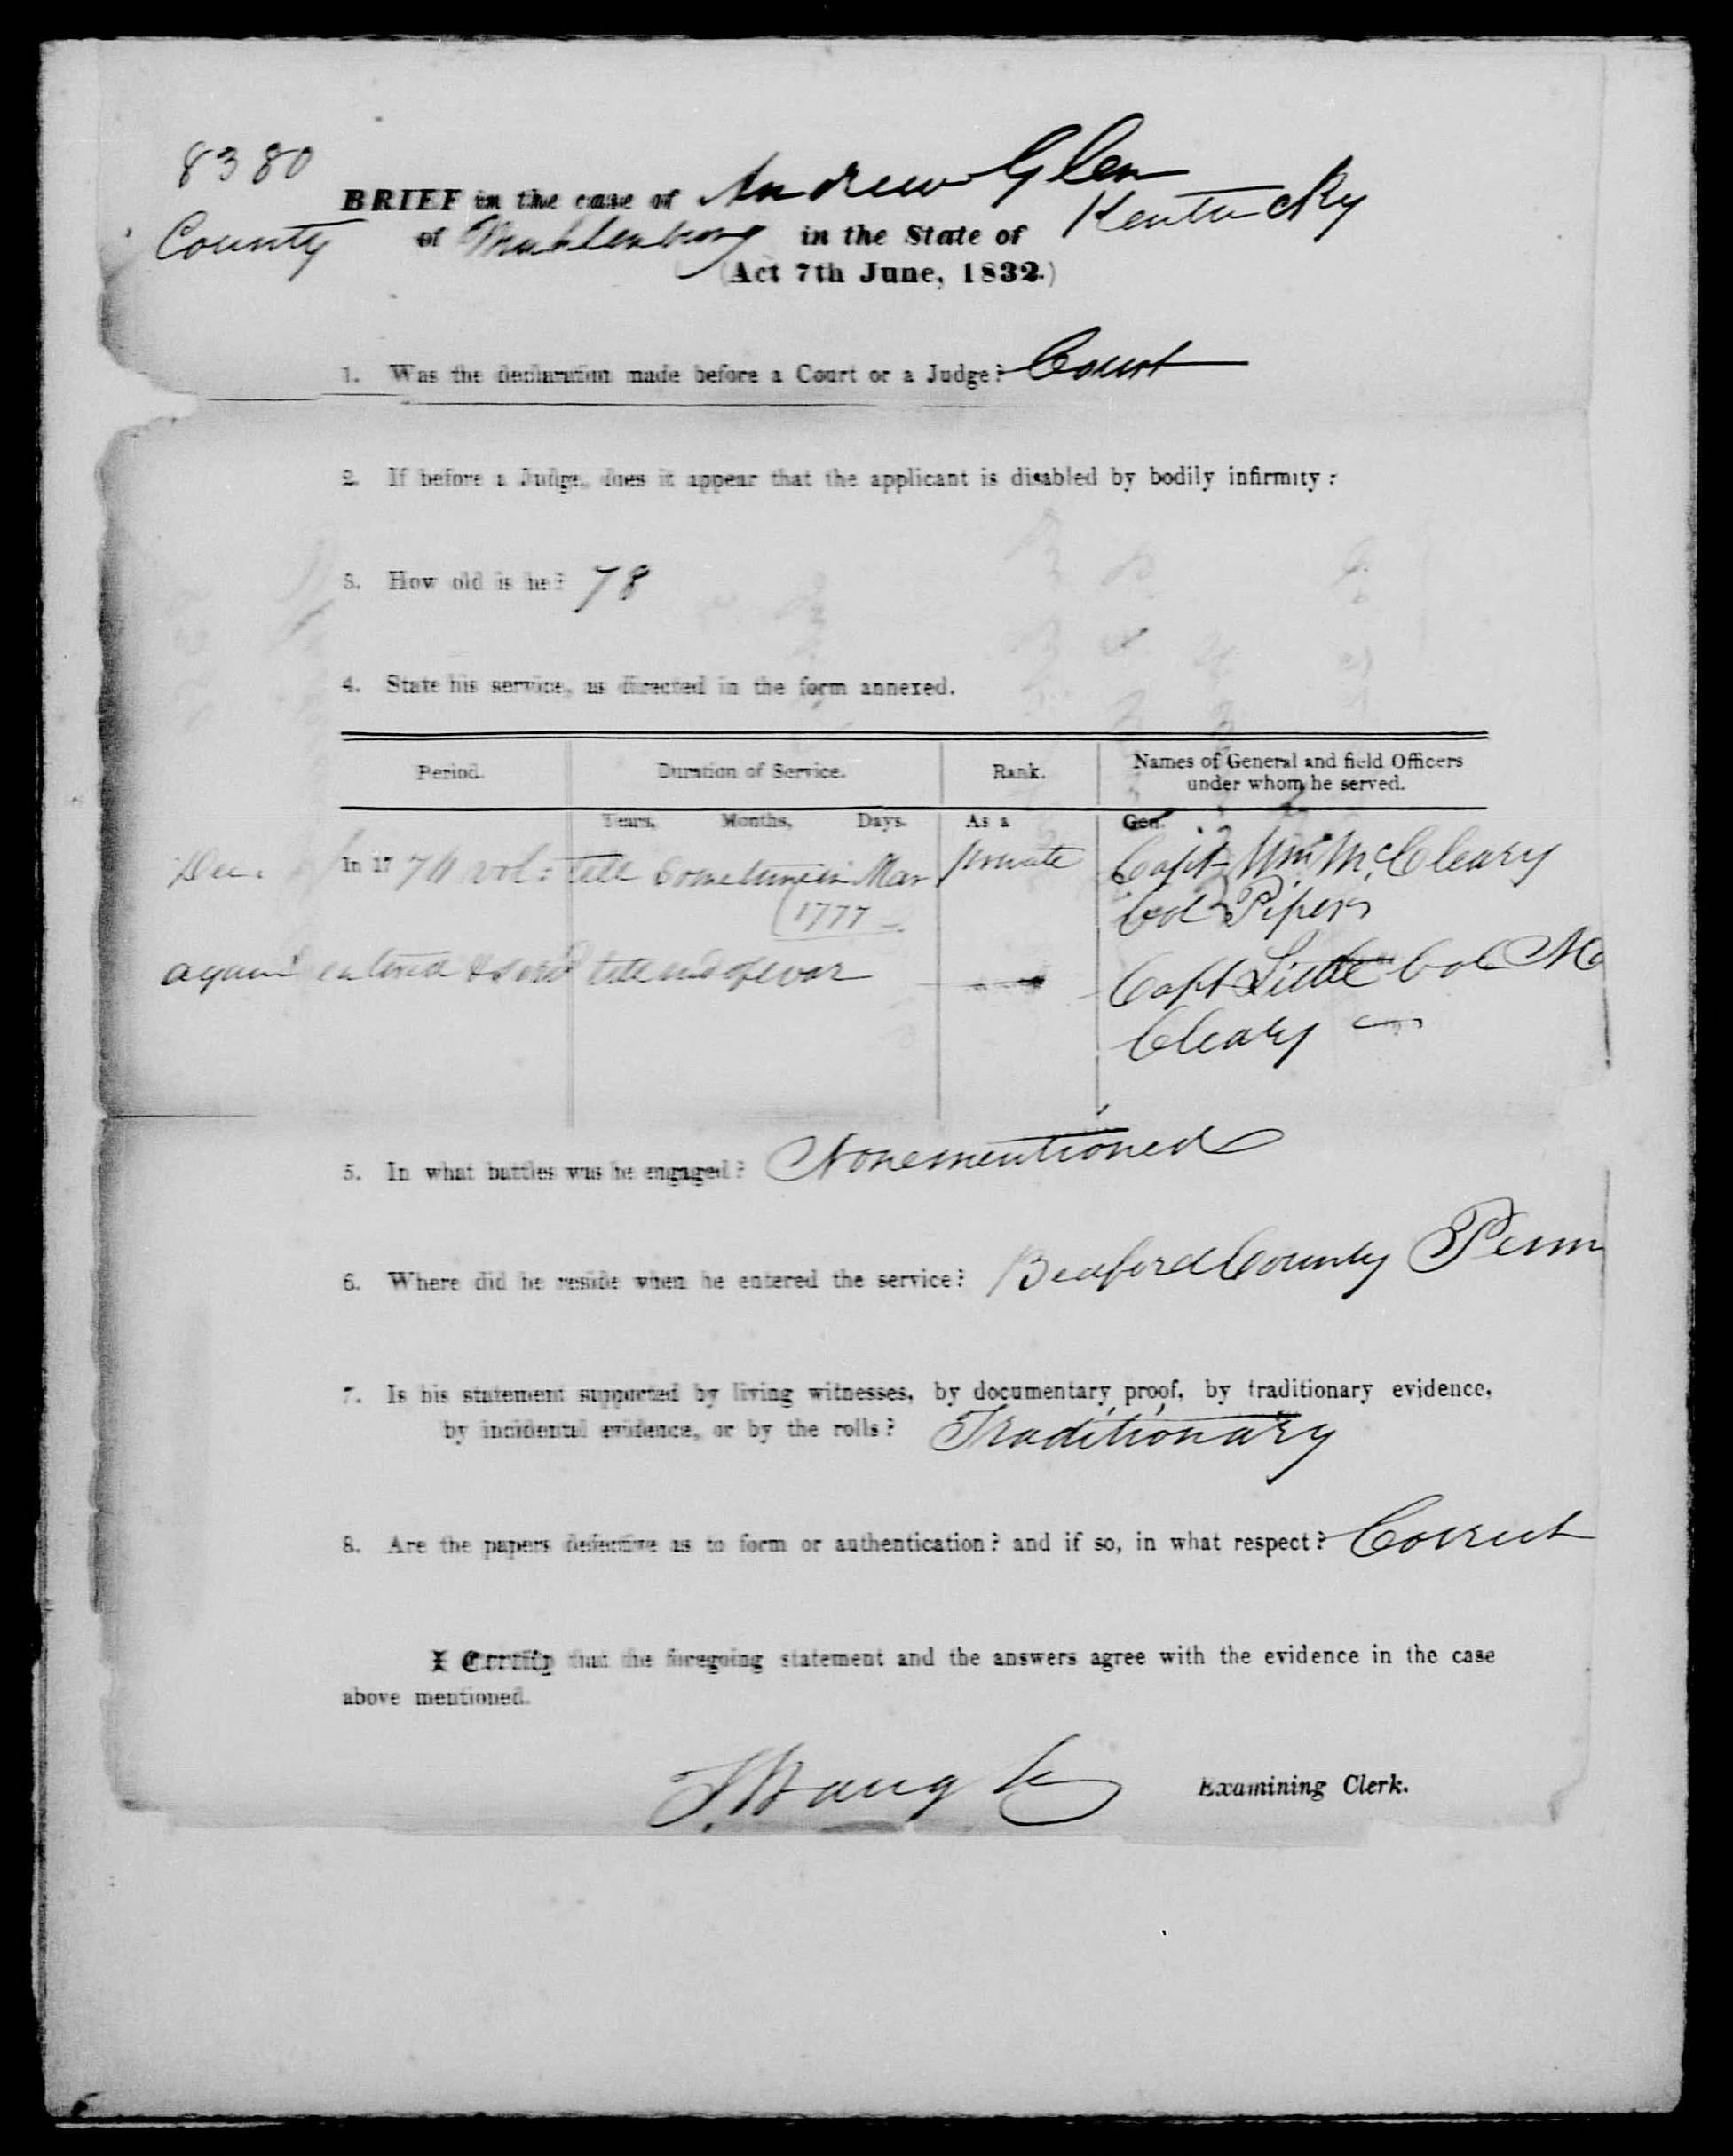 8380
BRIEF in the case of Andrew Glen
County of Muhlenburg in the State of Kentucky
(Act 7th June, 1832.)
1. Was the declaration made before a Court or a Judge? Court
2. If before a Judge, does it appear that the applicant is disabled by bodily infirmity?
3. How old is he? 78
4. State his service, as directed in the form annexed.
Period. Duration of Service. Rank. Names of General and field Officers
under whom he served.
Years. Months. Days. As a Gen.
Dec. In 1776 vol: till sometime in Mar private Capt Wm McCleary
1777 Col Pipers
again entered & servd till end of war Capt Little Col Mc
Cleary
5. In what battles was he engaged? None mentioned
6. Where did he reside when he entered the service? Bedford County Penn
7. Is his statement supported by living witnesses, by documentary proof, by traditionary evidence,
by incidental evidence, or by the rolls? Traditionary
8. Are the papers defective as to form or authentication? and if so, in what respect? Correct
I Certify that the foregoing statement and the answers agree with the evidence in the case
above mentioned.
Examining Clerk.